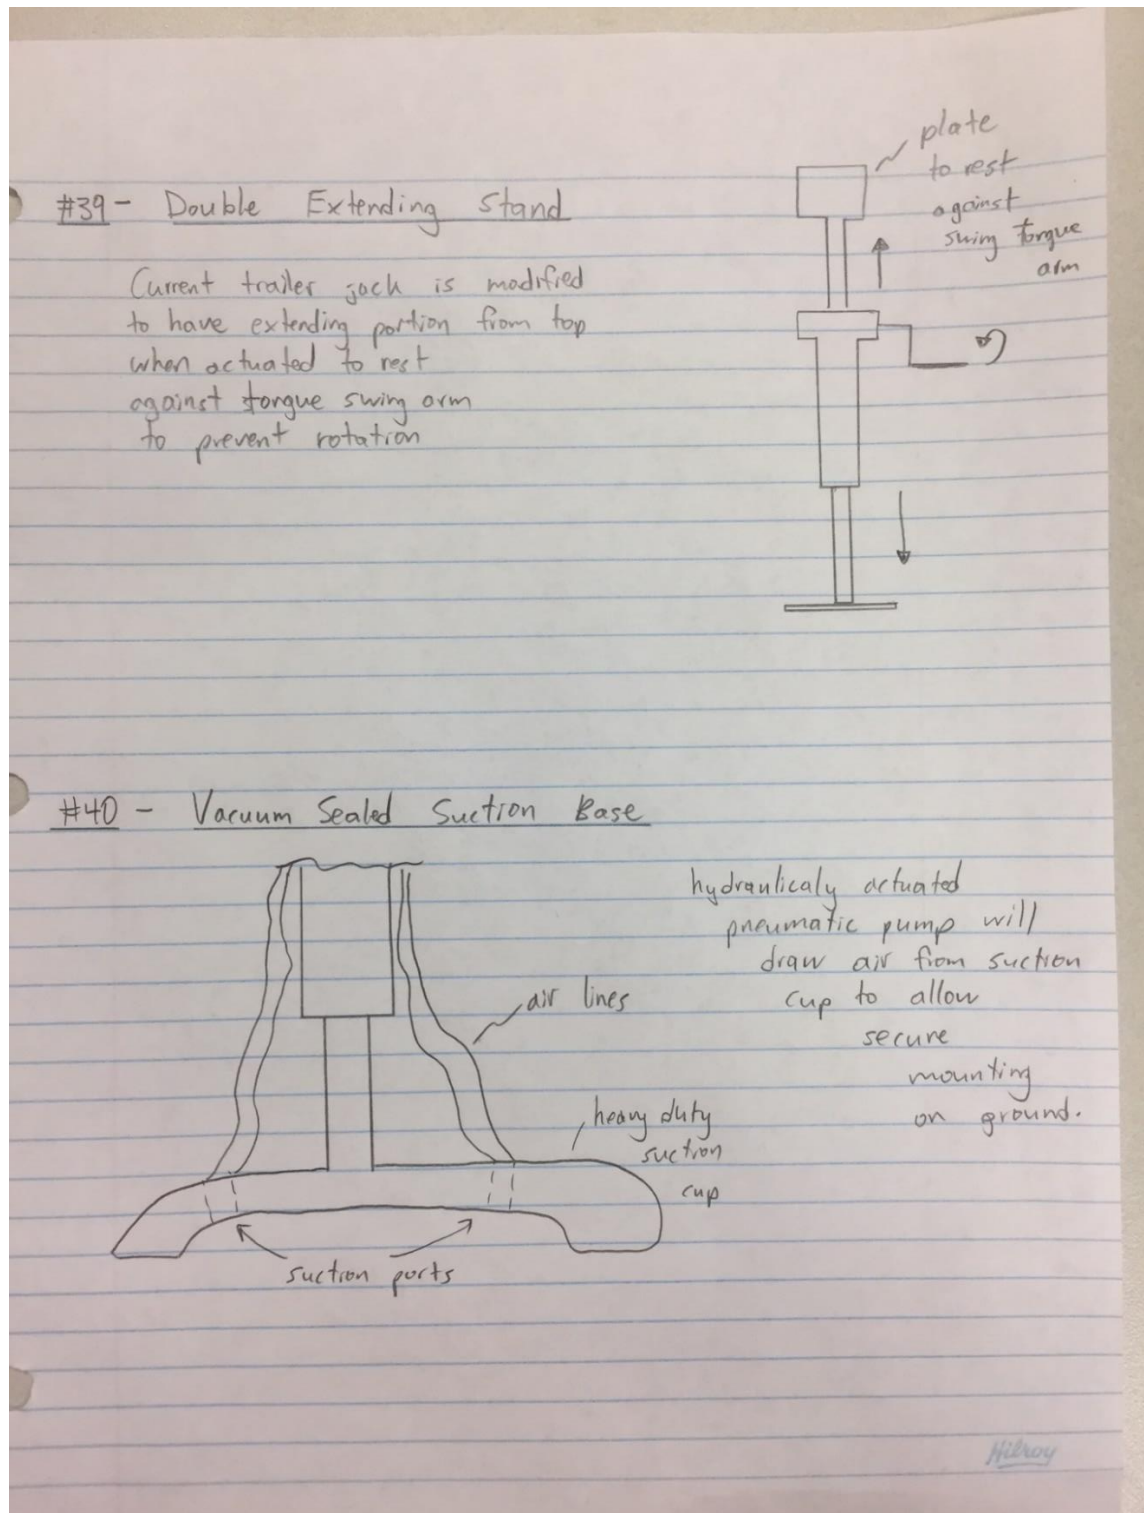 #39 - Double Extending Stand
Current trailer jack is modified
to have extending portion from top
when actuated to rest
against torque swing arm
to prevent rotation
plate
to rest
against
swing torque
arm
#40 - Vacuum Sealed Suction Base
hydraulicaly actuated
pneumatic pump will
draw air from suction
cup to allow
secure
mounting
on ground.
air lines
heavy duty
suction
cup
suction ports
Hilroy